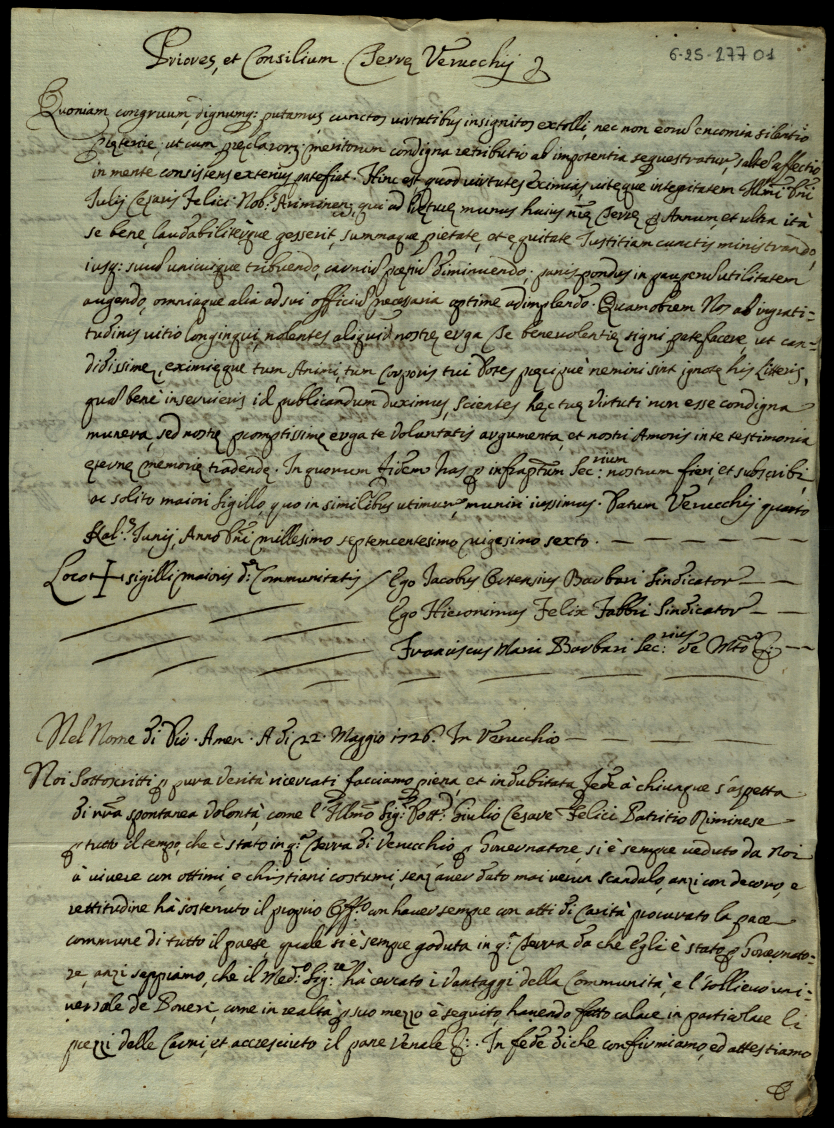 6-25-277 01
Priores, et Consilium Terrę Verucchij
Quoniam congruum, dignumq: putamus cunctos virtutibus insignitos extolli, nec non eorum encomia silentio
pręterire, ut cum pręclaror: meritorum condigna retributio ab impotentia sequestratur, saltem affectio
in mente consistens exterius patefiat. Hinc est quod virtutes eximias, viteque integitatem Illmi Dni
Julij Cesaris Felici Nob.s Ariminen: qui ad Pręturę munus huius nrę Terrę p Annum, et ultra ità
se bene, laudabiliterque gesserit, summaque pietate, et ęquitate Iustitiam cunctis ministrando,
iusq: suum unicuique tribuendo, carnium pretium diminuendo, panis pondus in pauperum utilitatem
augendo, omniaque alia ad sui officium necessaria optime adimplendo. Quamobrem Nos ab ingrati=
tudinis vitio longinqui, nolentes aliquid nostrę erga Te benevolentię signi patefacere, ut can=
didissime, eximięque tum Animi, tum Corporis tui Dotes pręcipuè nemini sint ignotę his Litteris,
quas bene inservieris id publicandum duximus, scientes hęc tuę virtuti non esse condigna
munera, sed nostrę promptissimę erga te Voluntatis argumenta, et nostri Amoris in te testimonia
ęternę memorię tradendę. In quorum fidem has p infraptum Sec:rium nostrum fieri, et subscribi,
ac solito maiori Sigillo, quo in similibus utimur, muniri iussimus. Datum Verucchij quarto
Kal.s Junij, Anno Dni millesimo septemcentesimo vigesimo sexto. — — — — — —
Loco + sigilli maioris d: Communitatis / Ego Jacobus Ortensius Barbari Sindicator — —
Ego Hieronimus Felix Fabbri Sindicator — —
Franciscus Maria Barbari Sec:rius de Mto —
Nel Nome di Dio. Amen. A di 22. Maggio 1726. In Verucchio — — — —
Noi Sottoscritti p pura verità ricercati facciamo piena, et indubitata fede à chiunque s'aspetta
di nra spontanea volontà, come l'Illmo Sig: Dott: Giulio Cesare Felici Patritio Riminese
p tutto il tempo, che è stato in q: Terra di Verucchio p Governatore, si è sempre veduto da Noi
à vivere con ottimi, e christiani costumi, senz'aver dato mai verun scandalo, anzi con decoro, e
rettitudine hà sostenuto il proprio Off.o con haver sempre con atti di Carità procurato la pace
commune di tutto il paese quale si è sempre goduta in q: Terra da che Egli è stato p Governato=
re, anzi seppiamo, che il Med:o Sig:re hà cercato i Vantaggi della Communità, e l'sollievo uni=
versale de Poveri, come in realtà p suo mezzo è seguito havendo fatto calare in particolare li
prezzi delle Carni, et accresciuto il pane Venale &:. In fede di che confirmiamo, ed attestiamo